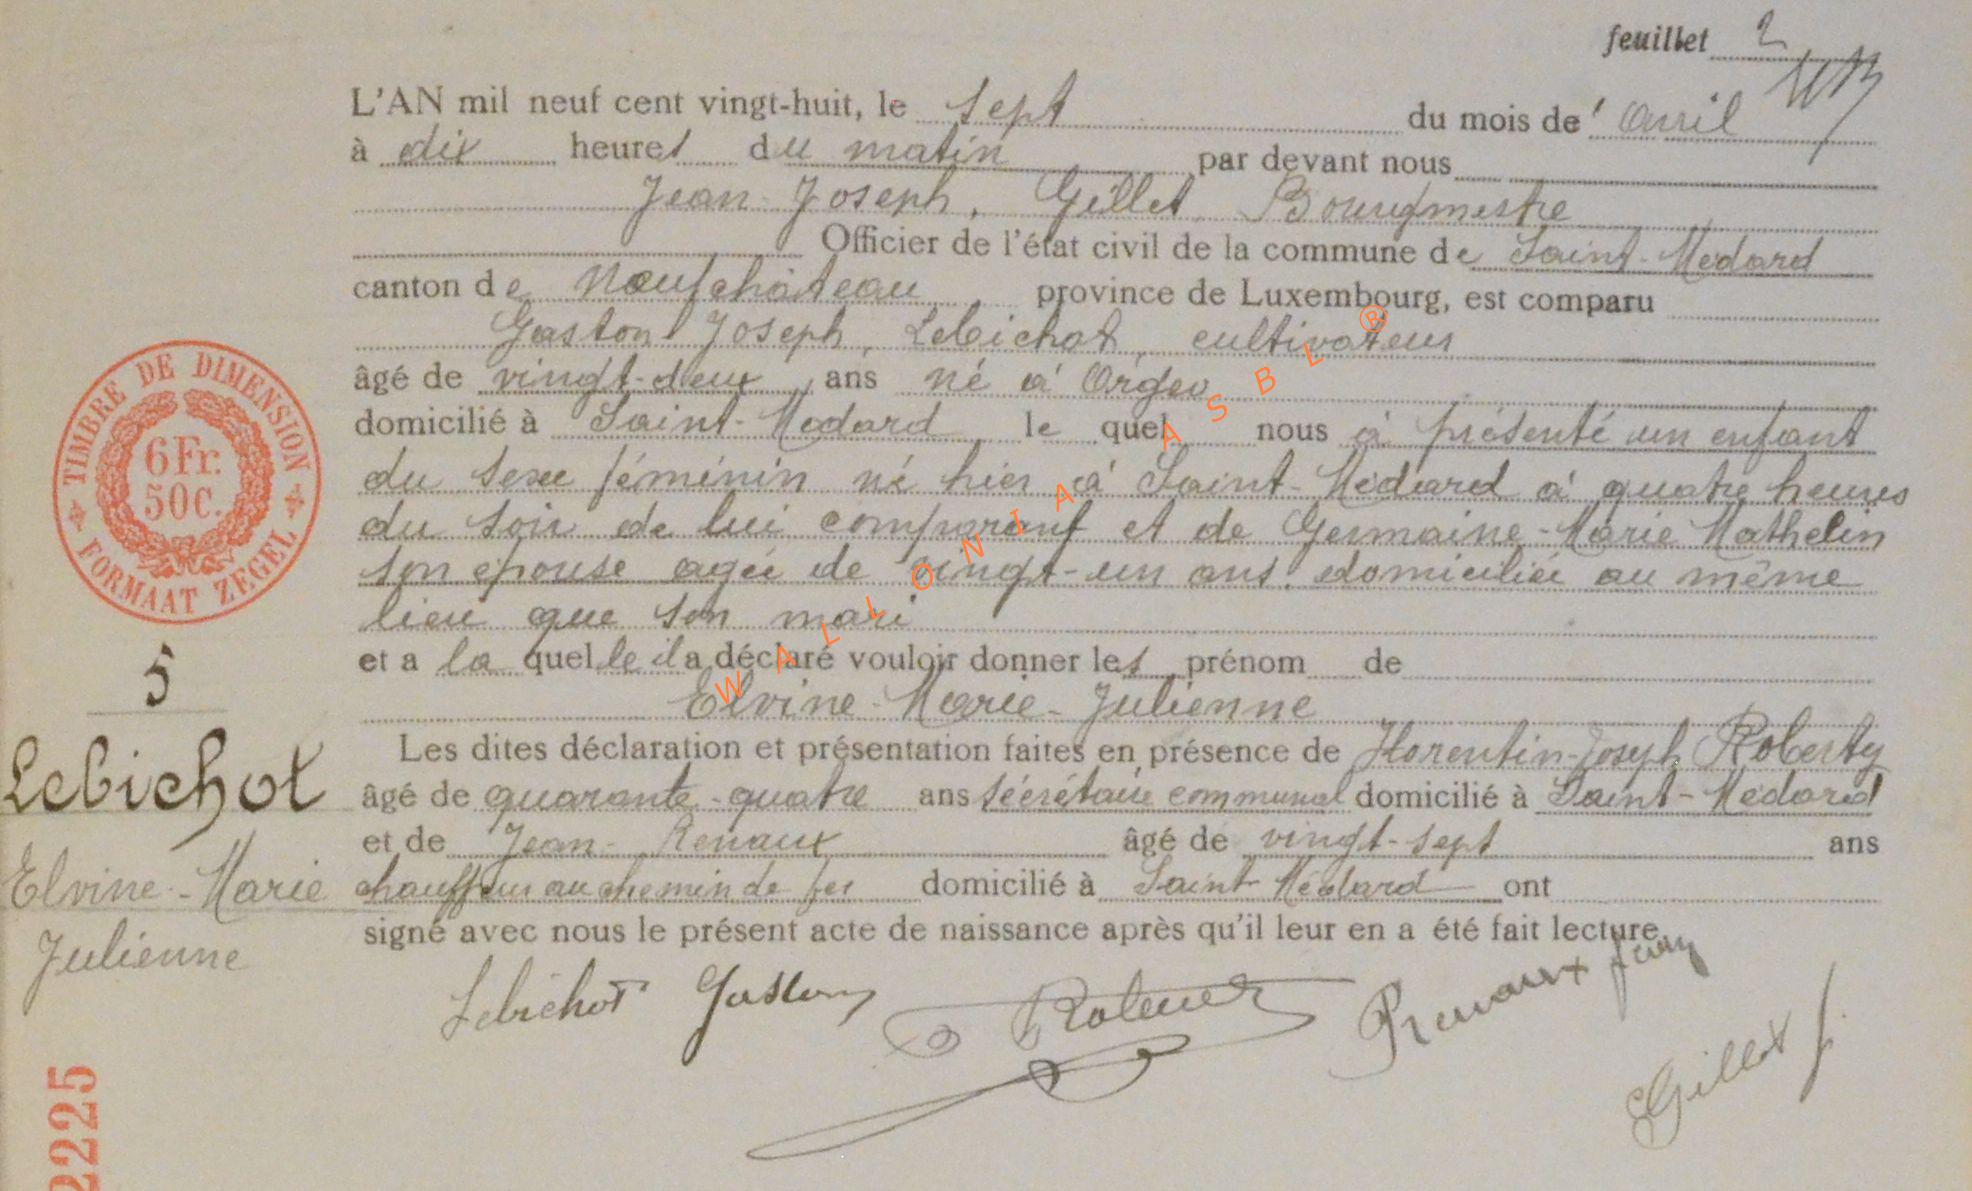 feuillet 2
L'AN mil neuf cent vingt-huit, le sept du mois de avril
à dix heures du matin par devant nous
Jean-Joseph, Gillet Bourgmestre
Officier de l'état civil de la commune de Saint-Médard
canton de Neufchâteau province de Luxembourg, est comparu
Gaston Joseph, Lebichot, cultivateur
âgé de vingt-deux ans né à Orgeo
domicilié à Saint-Médard le quel nous à présenté un enfant
du sexe féminin né hier à Saint-Médard à quatre heures
du soir de lui comparant et de Germaine-Marie Mathelin
son épouse agée de vingt-un ans, domiciliée au même
lieu que son mari
et a la quelle il a déclaré vouloir donner les prénom de
Elvine-Marie-Julienne
Les dites déclaration et présentation faites en présence de Florentin-Joseph Roberty
âgé de quarante-quatre ans sécrétaire communal domicilié à Saint-Médard
et de Jean Renaux âgé de vingt-sept ans
chauffeur au chemin de fer domicilié à Saint Médard ont
signé avec nous le présent acte de naissance après qu'il leur en a été fait lecture.
Lebichot Gaston Renaux Jean
Gillet J.
TIMBRE DE DIMENSION
6 Fr.
50 C.
FORMAAT ZEGEL
5
Lebichot
Elvine-Marie
Julienne
2225
WALLONIA ASBL ®